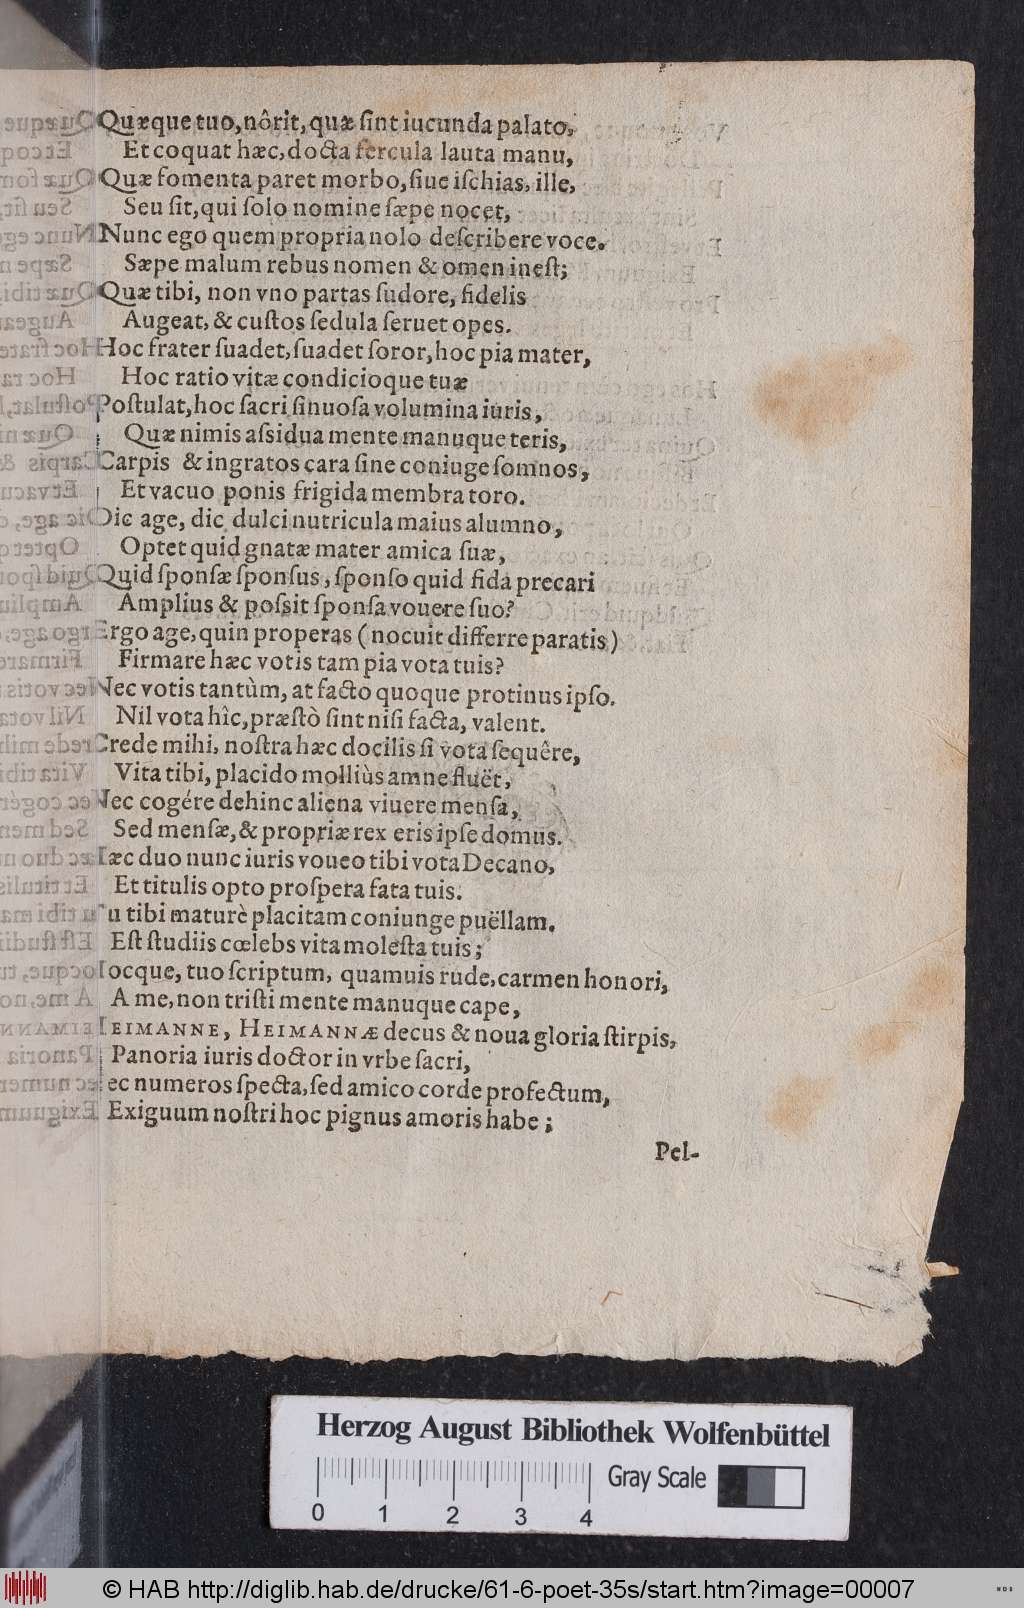 Quæque tuo, nôrit, quæ ſint iucunda palato,
Et coquat hæc, docta fercula lauta manu,
Quæ fomenta paret morbo, ſiue iſchias, ille,
Seu ſit, qui ſolo nomine ſæpe nocet,
Nunc ego quem propria nolo deſcribere voce.
Sæpe malum rebus nomen & omen ineſt;
Quæ tibi, non vno partas ſudore, fidelis
Augeat, & cuſtos ſedula ſeruet opes.
Hoc frater ſuadet, ſuadet ſoror, hoc pia mater,
Hoc ratio vitæ condicioque tuæ
Poſtulat, hoc ſacri ſinuoſa volumina iuris,
Quæ nimis aſsidua mente manuque teris,
Carpis & ingratos cara ſine coniuge ſomnos,
Et vacuo ponis frigida membra toro.
Dic age, dic dulci nutricula maius alumno,
Optet quid gnatæ mater amica ſuæ,
Quid ſponſæ ſponſus, ſponſo quid fida precari
Amplius & poſsit ſponſa vouere ſuo?
Ergo age, quin properas (nocuit differre paratis)
Firmare hæc votis tam pia vota tuis?
Nec votis tantùm, at facto quoque protinus ipſo.
Nil vota hîc, præſtò ſint niſi facta, valent.
Crede mihi, noſtra hæc docilis ſi vota ſequêre,
Vita tibi, placido molliùs amne fluët,
Nec cogére dehinc aliena viuere menſa,
Sed menſæ, & propriæ rex eris ipſe domus.
Hæc duo nunc iuris voueo tibi vota Decano,
Et titulis opto proſpera fata tuis.
Tu tibi maturè placitam coniunge puëllam.
Eſt ſtudiis cœlebs vita moleſta tuis;
Hocque, tuo ſcriptum, quamuis rude, carmen honori,
A me, non triſti mente manuque cape,
HEIMANNE, HEIMANNÆ decus & noua gloria ſtirpis,
Panoria iuris doctor in vrbe ſacri,
Nec numeros ſpecta, ſed amico corde profectum,
Exiguum noſtri hoc pignus amoris habe;
Pel-
Herzog August Bibliothek Wolfenbüttel
Gray Scale
0 1 2 3 4
© HAB http://diglib.hab.de/drucke/61-6-poet-35s/start.htm?image=00007